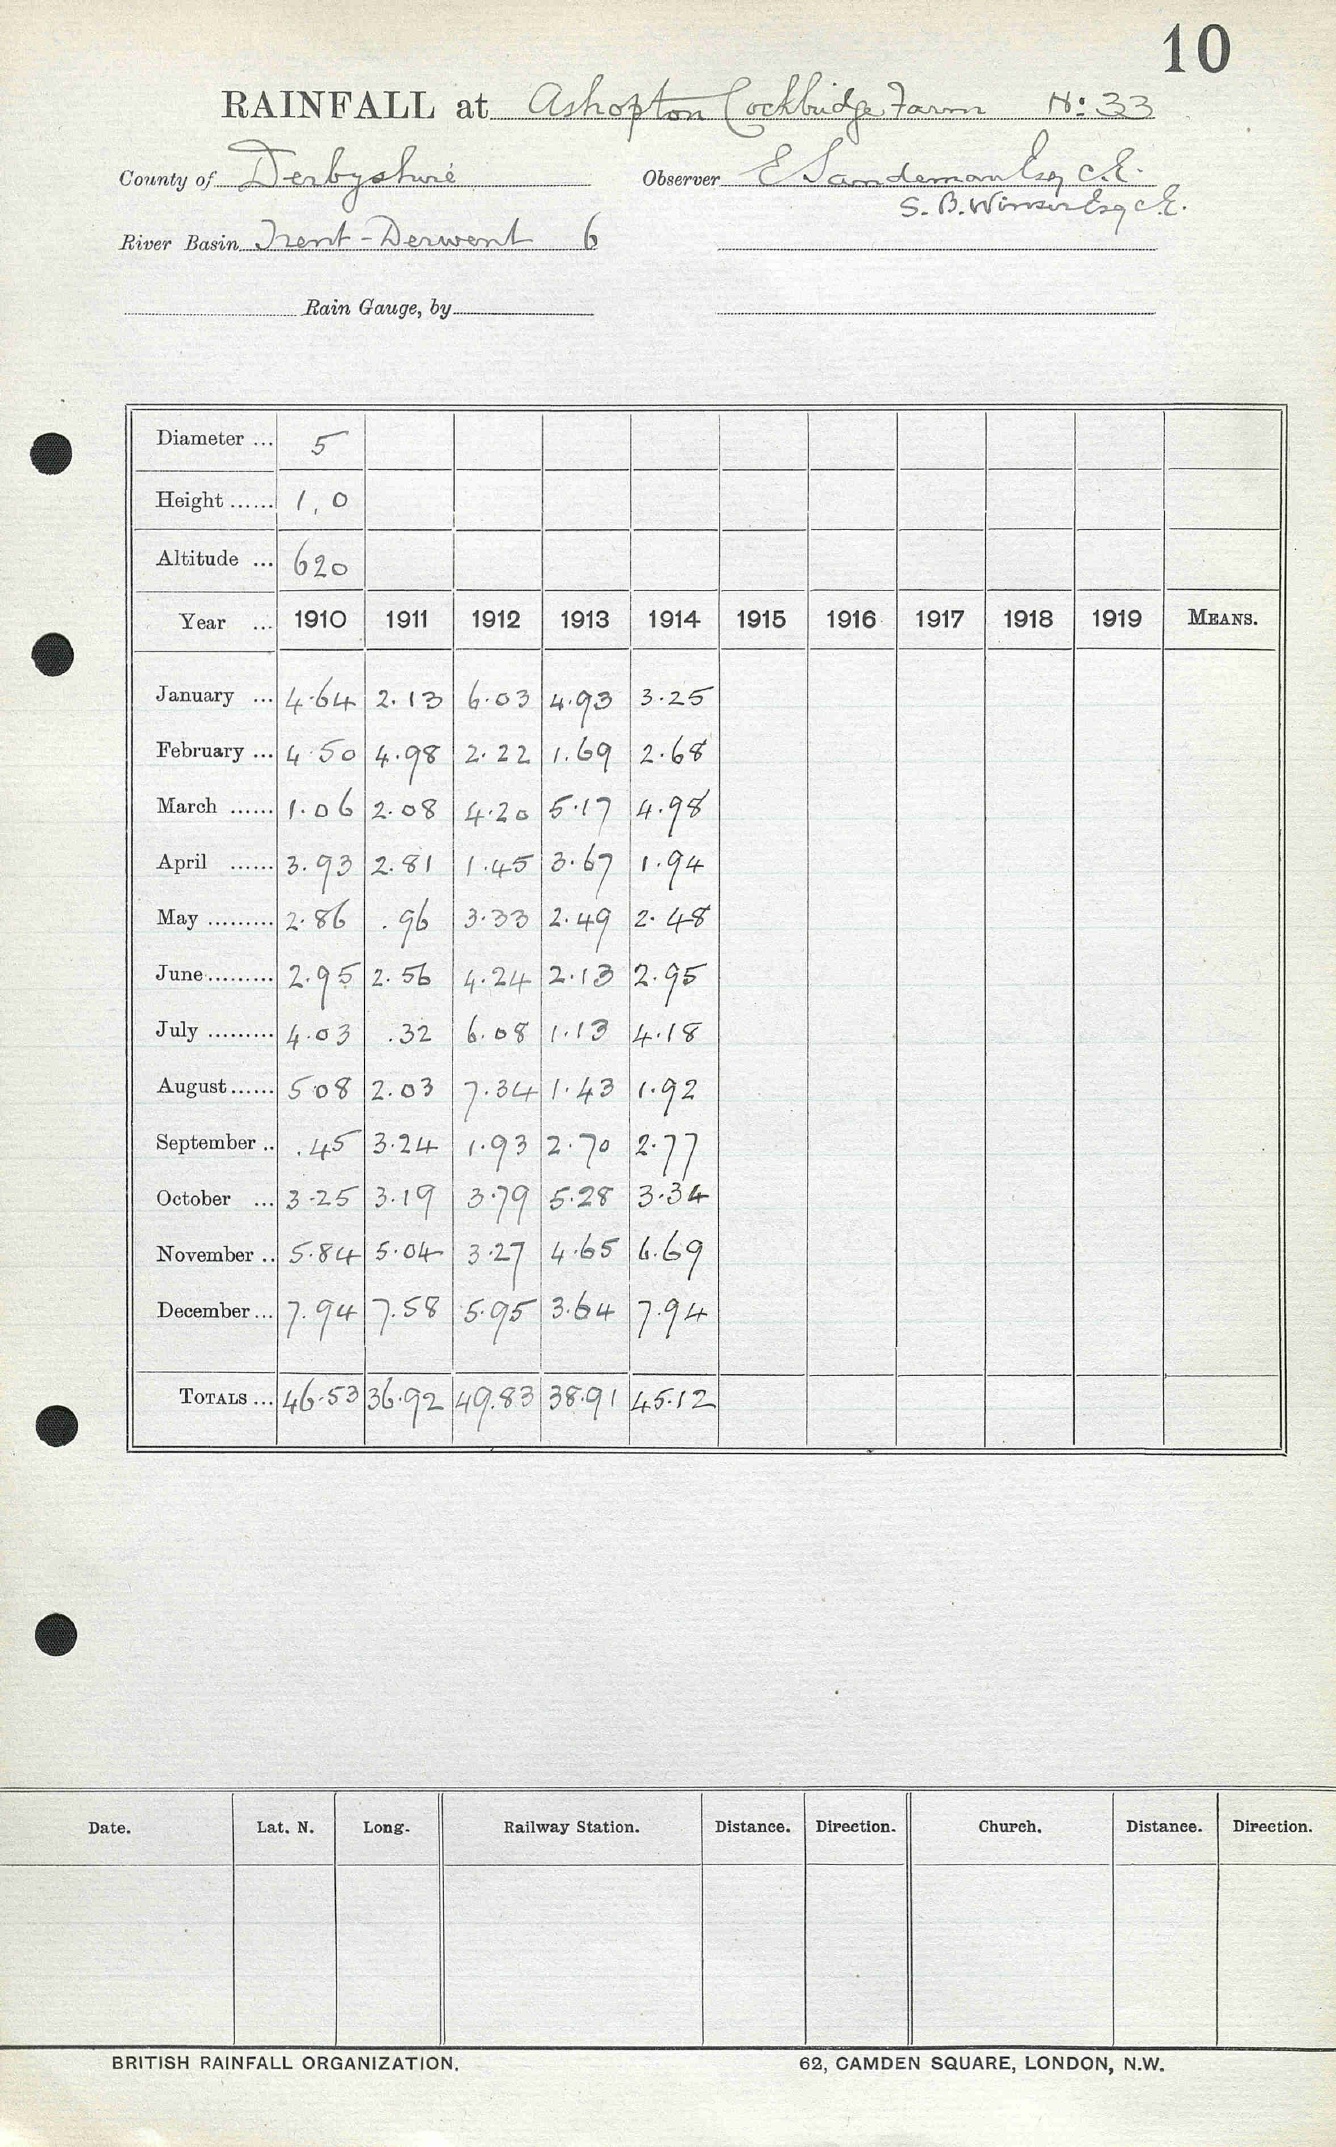 10
RAINFALL at Ashopton Cockbridge Farm No: 33
County of Derbyshire Observer E Sandeman Esq C.E.
S. B. Winser Esq C.E.
River Basin Trent-Derwent 6
Rain Gauge, by
Diameter ... 5
Height ...... 1,0
Altitude ... 620
Year ... 1910 1911 1912 1913 1914 1915 1916 1917 1918 1919 MEANS.
January ... 4.64 2.13 6.03 4.93 3.25
February ... 4.50 4.98 2.22 1.69 2.68
March ...... 1.06 2.08 4.20 5.17 4.98
April ...... 3.93 2.81 1.45 3.67 1.94
May ......... 2.86 .96 3.33 2.49 2.48
June ......... 2.95 2.56 4.24 2.13 2.95
July ......... 4.03 .32 6.08 1.13 4.18
August ...... 5.08 2.03 7.34 1.43 1.92
September .. .45 3.24 1.93 2.70 2.77
October ... 3.25 3.19 3.79 5.28 3.34
November .. 5.84 5.04 3.27 4.65 6.69
December ... 7.94 7.58 5.95 3.64 7.94
TOTALS ... 46.53 36.92 49.83 38.91 45.12
Date. Lat. N. Long. Railway Station. Distance. Direction. Church. Distance. Direction.
BRITISH RAINFALL ORGANIZATION. 62, CAMDEN SQUARE, LONDON, N.W.